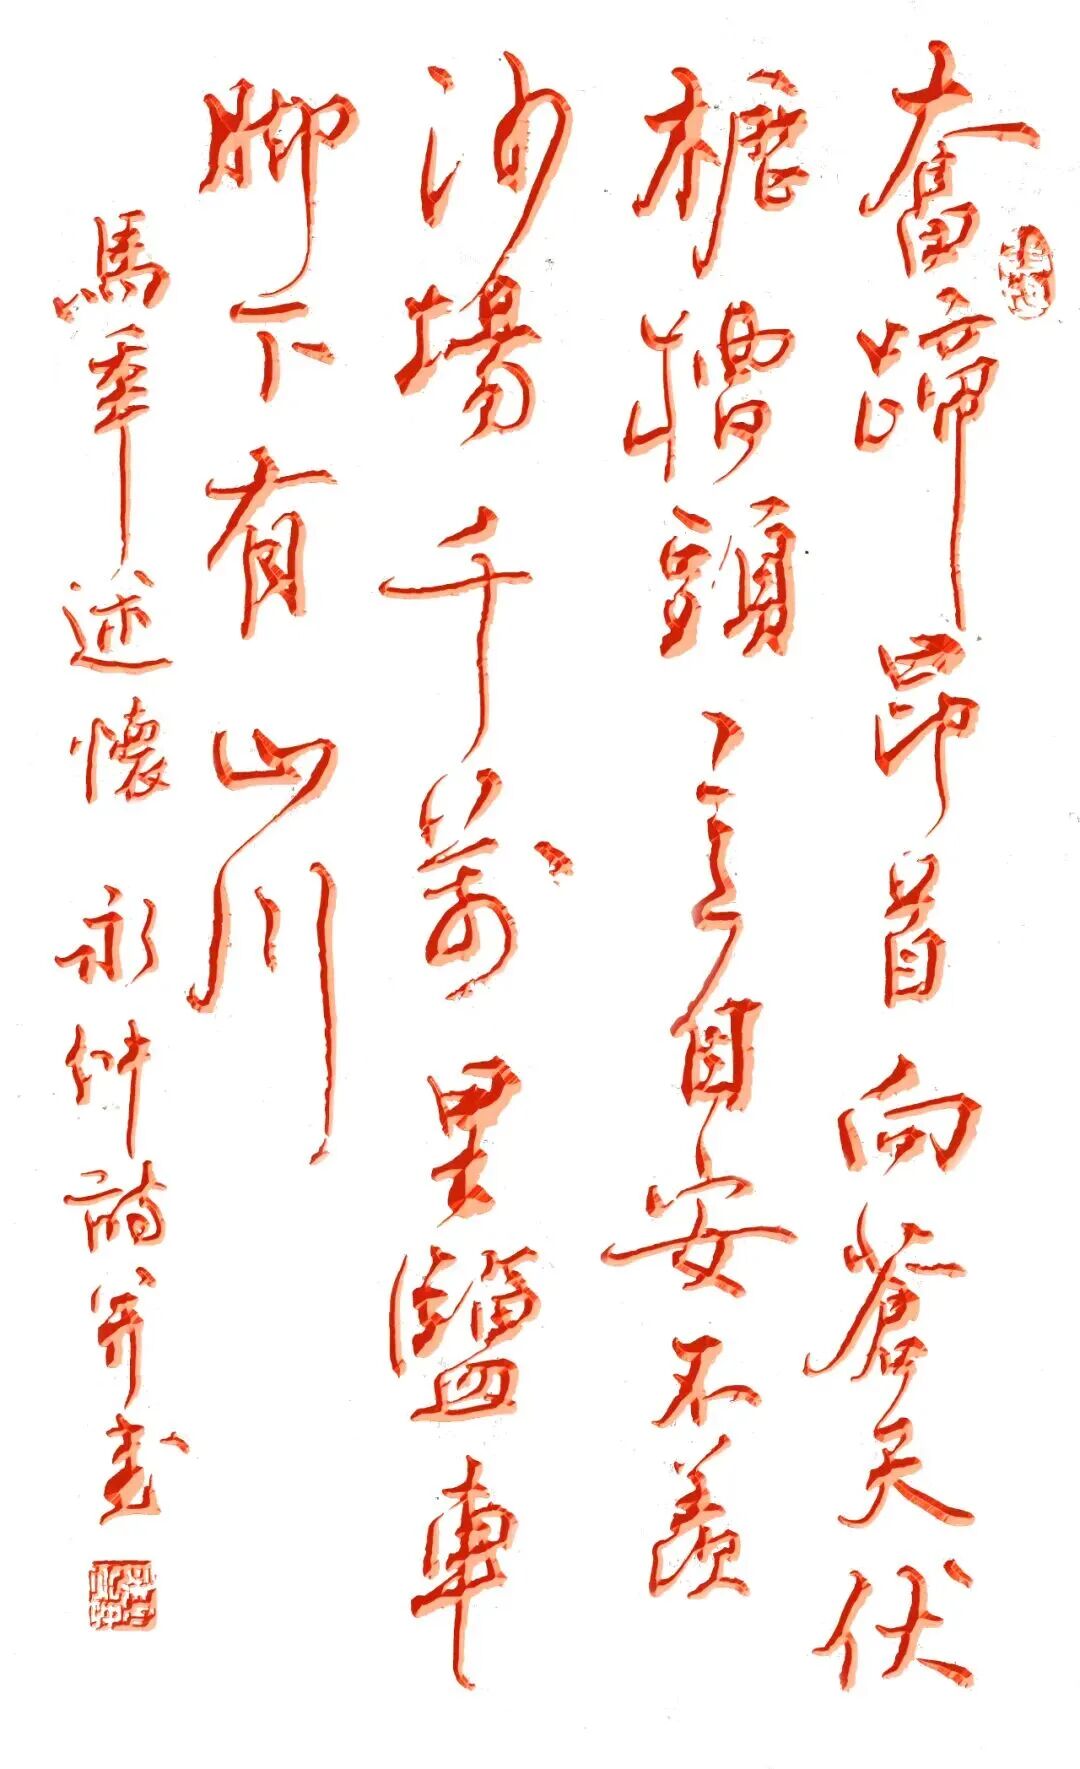 奮蹄昂首向蒼天伏
櫪槽頭意自安不羨
沙場千萬里鹽車
脚下有山川
馬年述懷 永詩并書